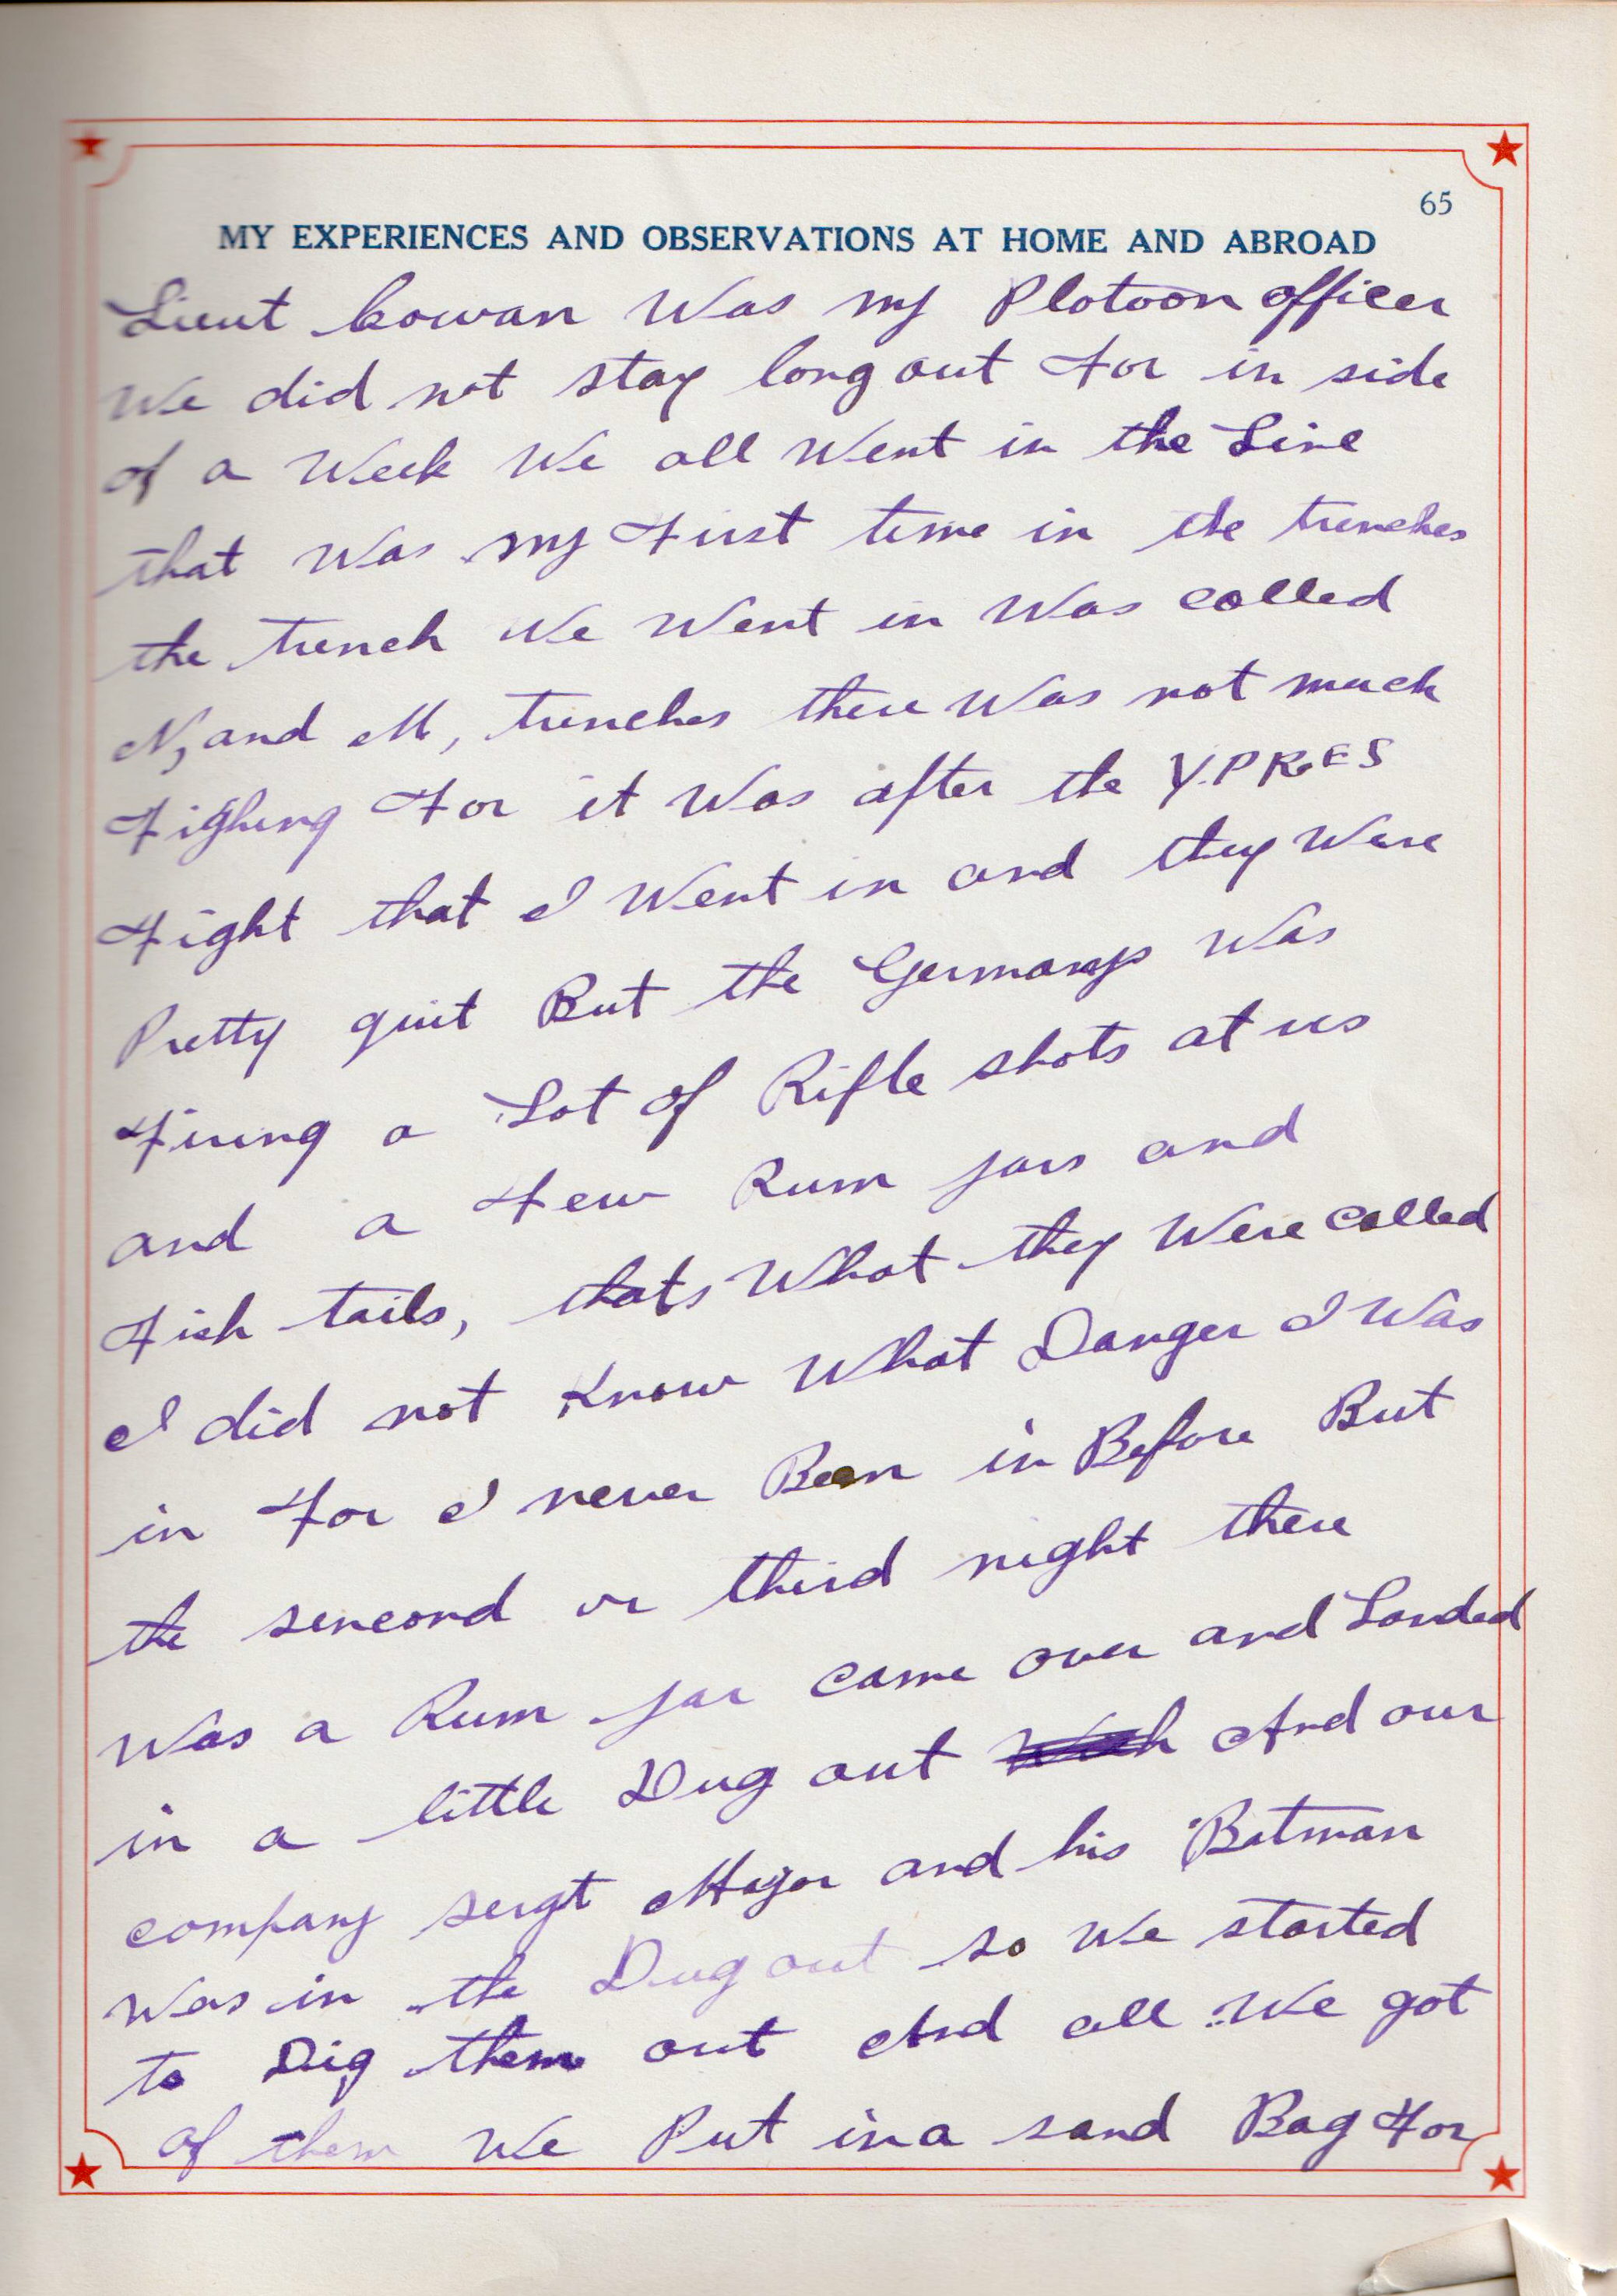 65
MY EXPERIENCES AND OBSERVATIONS AT HOME AND ABROAD
Lieut Cowan Was my Plotoon officer
We did not stay long out For in side
of a Week We all Went in the Line
that Was my First time in the trenches
the trench We Went in Was called
N, and M, trenches there Was not much
Fighing For it Was after the Y.PRES
Fight that I Went in and they Were
Pretty quit But the Germans Was
Firing a Lot of Rifle shots at us
and a Few Rum jars and
Fish tails, thats What they Were called
I did not Know What Danger I Was
in For I never Been in Before But
the sencond or third night there
Was a Rum jar came over and Landed
in a little Dug out And our
company sergt Major and his Batman
Was in the Dug out so We started
to Dig them out And all We got
of them We Put in a sand Bag For